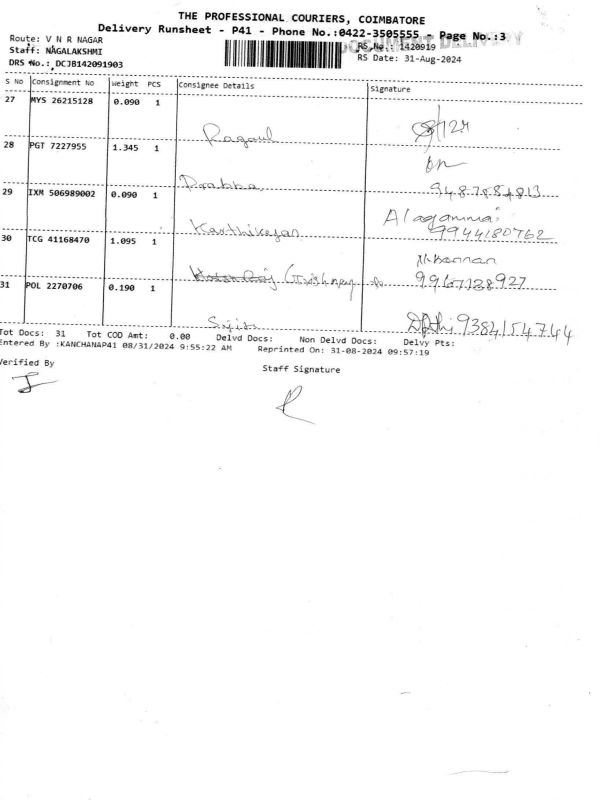 THE PROFESSIONAL COURIERS, COIMBATORE
Delivery Runsheet - P41 - Phone No.:0422-3505555 - Page No.:3
DOCUMENT DELIVERY
Route: V N R NAGAR RS No.: 1420919
Staff: NAGALAKSHMI RS Date: 31-Aug-2024
DRS No.: DCJB142091903
S No Consignment No Weight PCS Consignee Details Signature
27 MYS 26215128 0.090 1
Ragoul
28 PGT 7227955 1.345 1
Prabha
29 IXM 506989002 0.090 1 Alagammai
Karthikeyan 9944180762
30 TCG 41168470 1.095 1 N.Kannan
9967128927
31 POL 2270706 0.190 1
9384154744
Tot Docs: 31 Tot COD Amt: 0.00 Delvd Docs: Non Delvd Docs: Delvy Pts:
Entered By :KANCHANAP41 08/31/2024 9:55:22 AM Reprinted On: 31-08-2024 09:57:19
Verified By Staff Signature